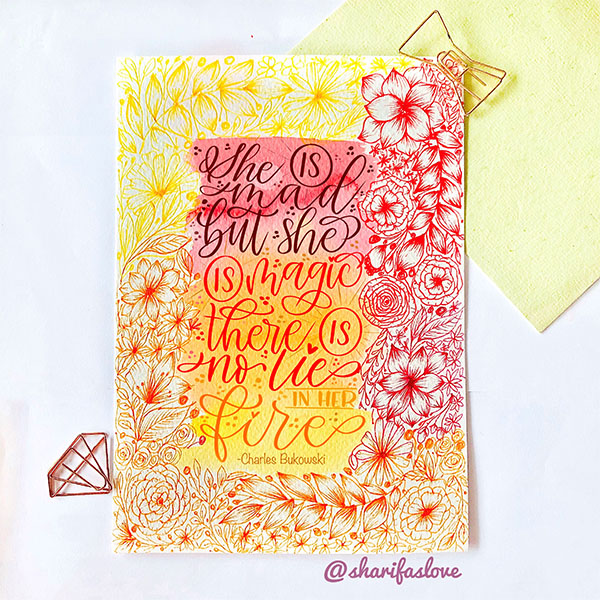 She IS
mad
but she
IS magic
there IS
no lie
IN HER
fire
-Charles Bukowski
@sharifaslove